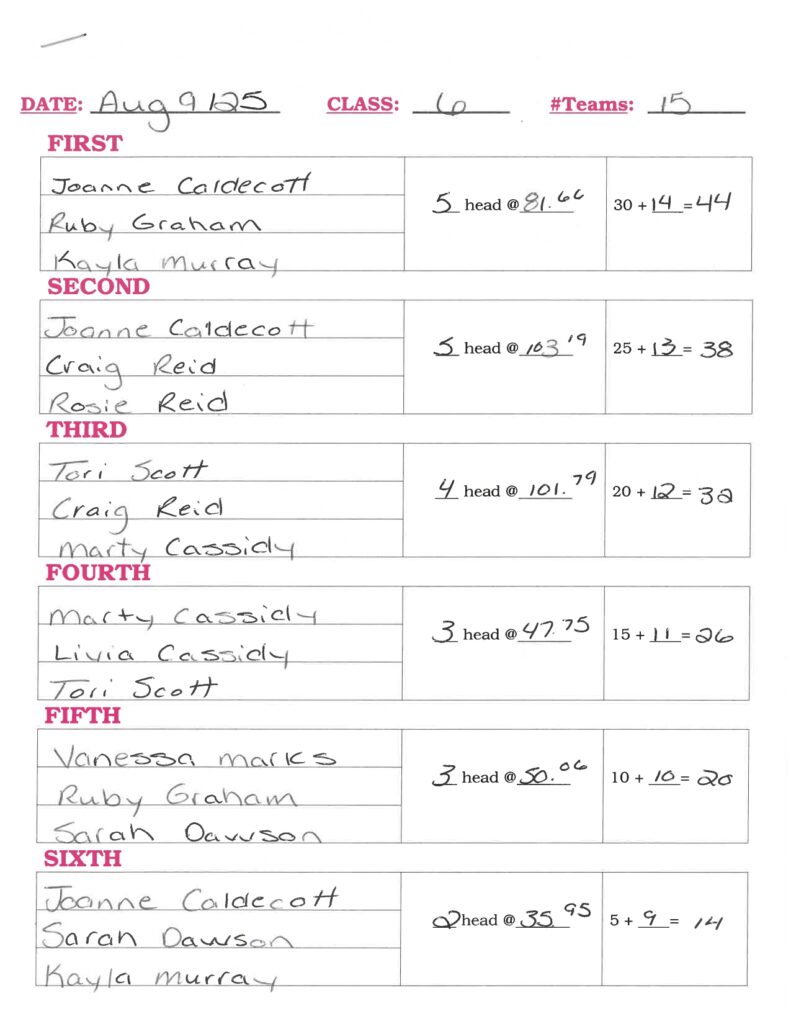 DATE: Aug 9/25 CLASS: 6 #Teams: 15
FIRST
Joanne Caldecott
5 head @ 81.66 30 + 14 = 44
Ruby Graham
Kayla Murray
SECOND
Joanne Caldecott
5 head @ 103.19 25 + 13 = 38
Craig Reid
Rosie Reid
THIRD
Tori Scott
4 head @ 101.79 20 + 12 = 32
Craig Reid
Marty Cassidy
FOURTH
Marty Cassidy
3 head @ 47.75 15 + 11 = 26
Livia Cassidy
Tori Scott
FIFTH
Vanessa Marks
3 head @ 50.06 10 + 10 = 20
Ruby Graham
Sarah Dawson
SIXTH
Joanne Caldecott
2 head @ 35.95 5 + 9 = 14
Sarah Dawson
Kayla Murray